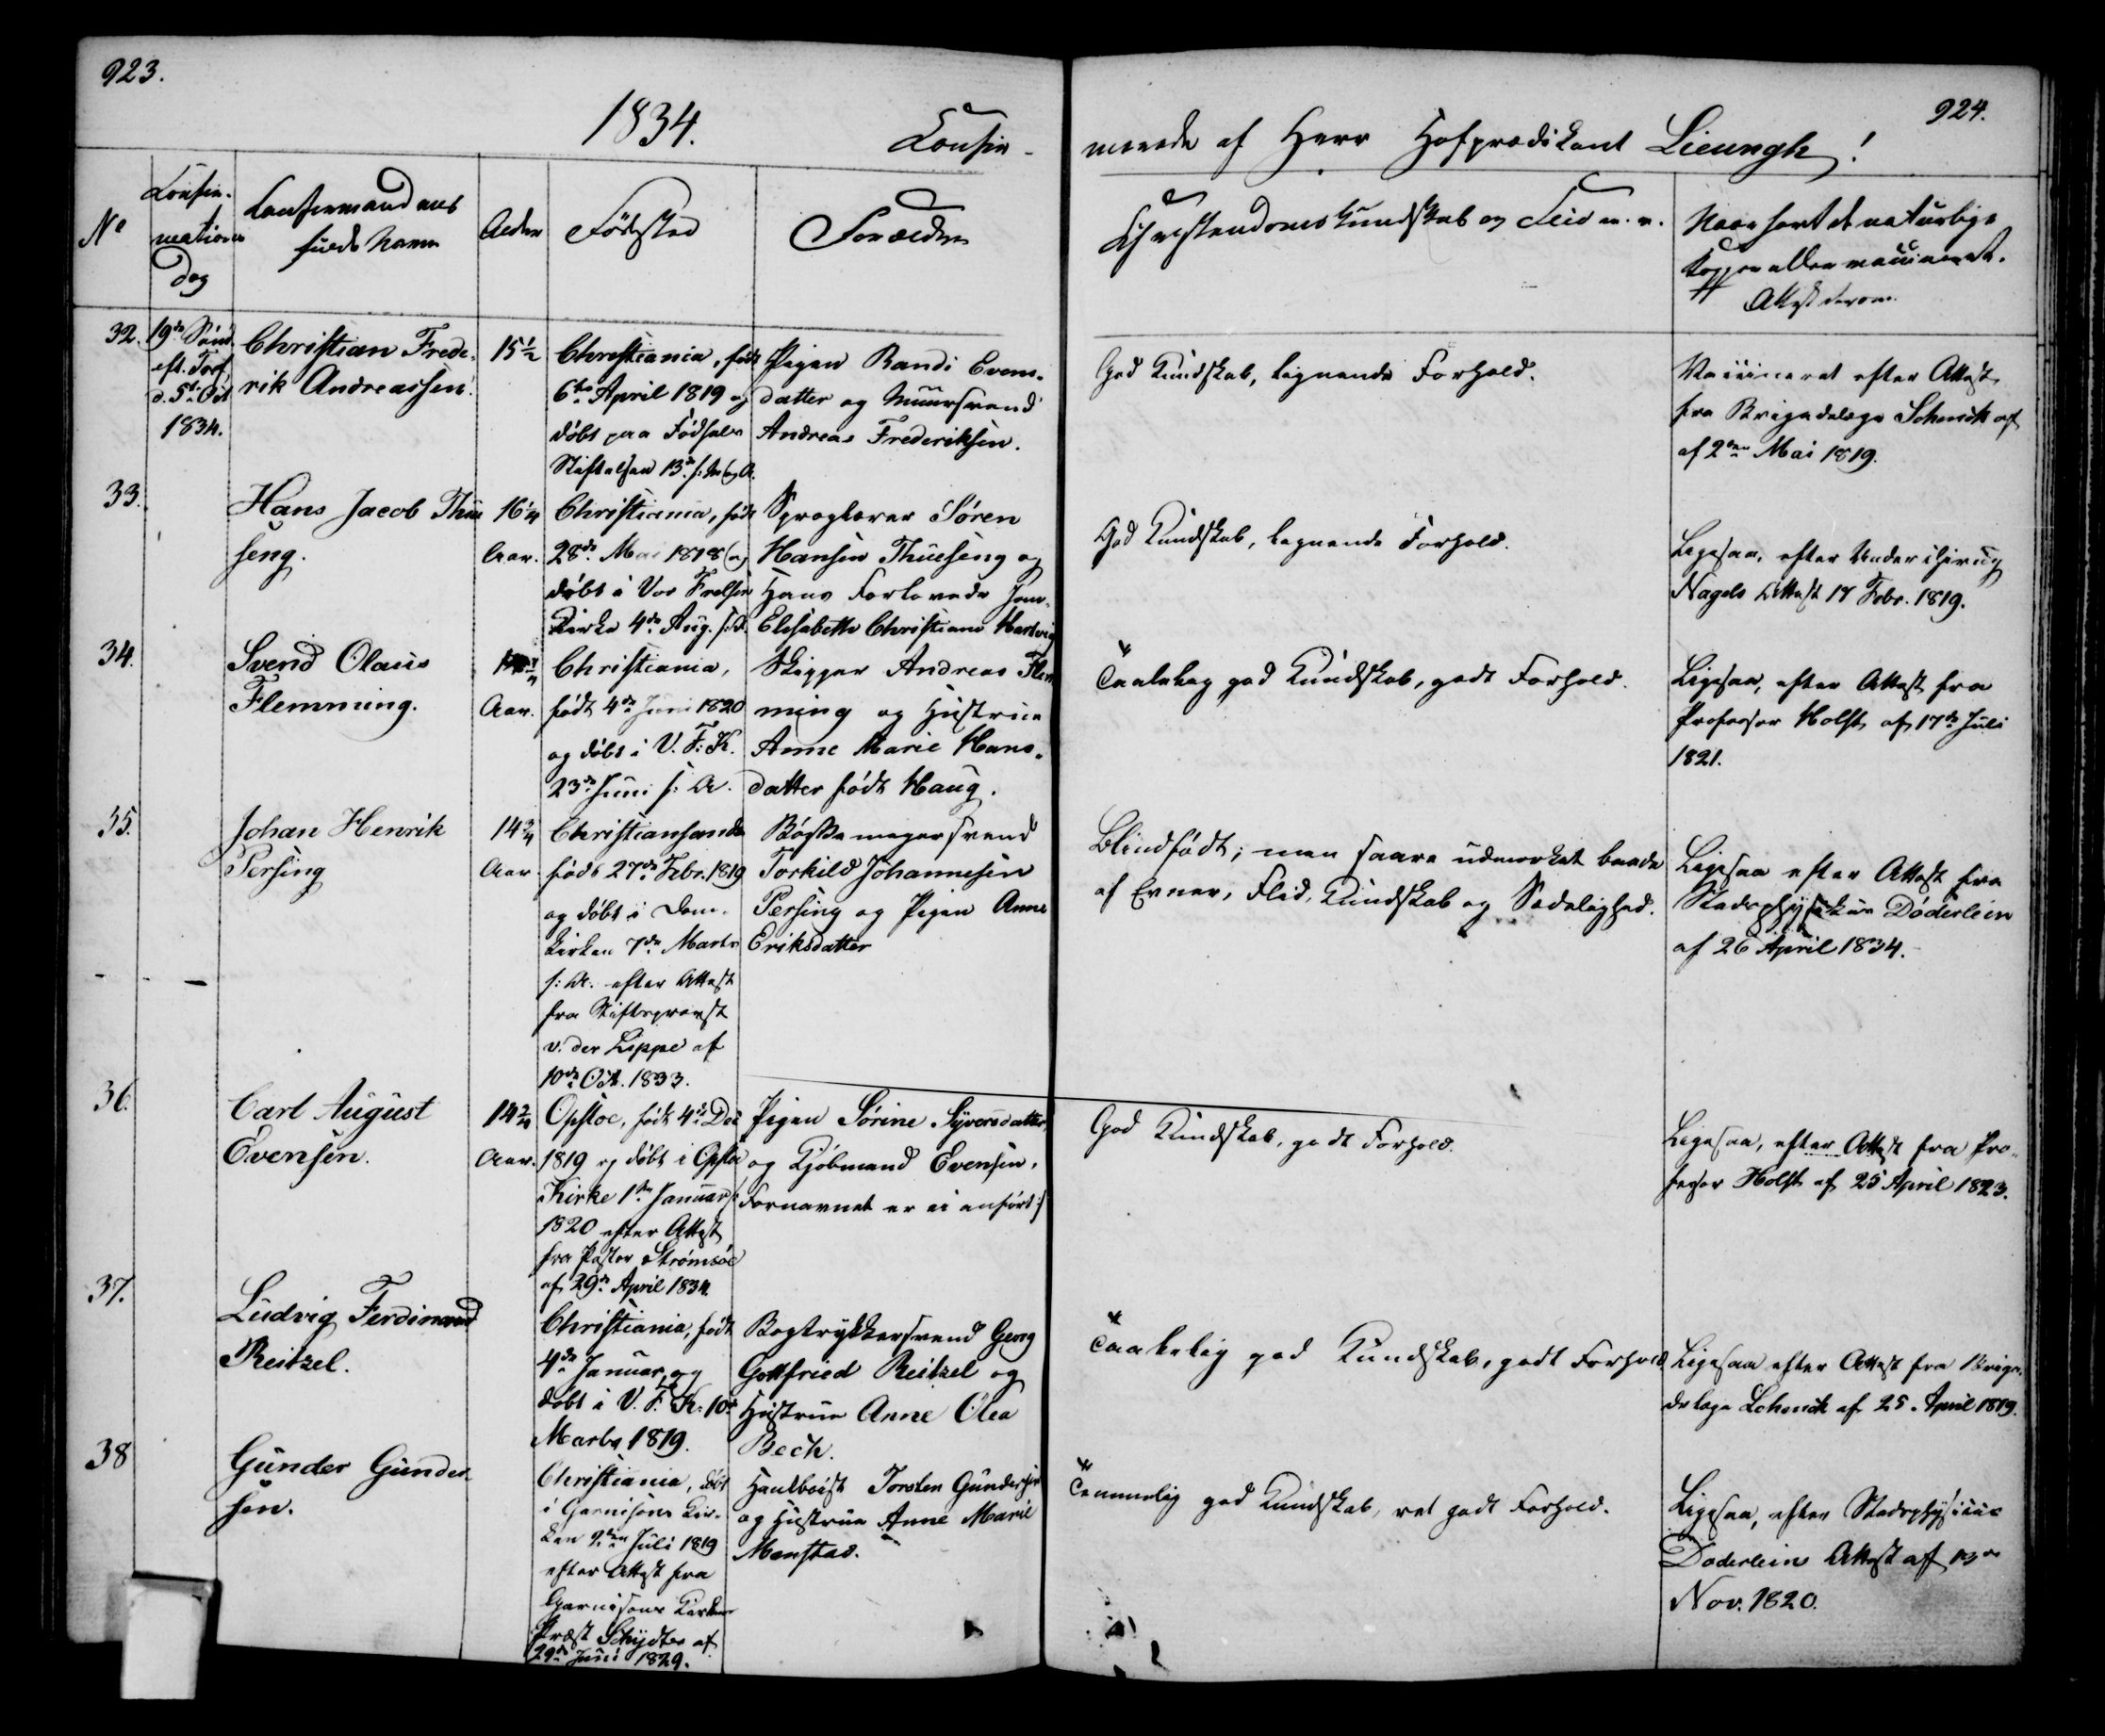 923.
1834.
Confir-
No
Confir-
mations
Dag
Confirmandens
fulde Navn
Alder
Fødested
Forældre
32.
19de Sønd.
eft. Tref.
d. 5te Oct
1834.
Christian Frede-
rik Andreassen.
15½
Christiania, født
6te April 1819 og
døbt paa Fødsels
Stiftelsen 13de s: M og A.
Pigen Randi Evens-
datter og Muursvend
Andreas Frederiksen.
33.
Hans Jacob Thue
seng.
16¼
Aar.
Christiania, født
28de Mai 1818 og
døbt i Vor Frelsers
Kirke 4de Aug. s: A.
Sproglærer Søren
Hansen Thueseng og
Hans Forlovede Jom.
Elisabeth Christiane Hartvig
34.
Svend Olaus
Flemming.
Aar.
Christiania,
født 4de Juni 1820
og døbt i V. F: K.
23de Juni s: A.
Skipper Andreas Flem
ming og Hustrue
Anne Marie Hans-
datter født Haug.
35.
Johan Henrik
Persing
14¾
Aar.
Christiansand
født 27de Febr. 1819
og døbt i Dom-
kirken 7de Marts
s: A. efter Attest
fra Stiftsprovst
v. der Lippe af
10de Oct. 1833.
Bøssemagersvend
Torkild Johannesen
Persing og Pigen Anne
Eriksdatter
36.
Carl August
Evensen.
14 2/4
Aar.
Opsloe, født 4de Dec
1819 og døbt i Opsloe
Kirke 1ste Januar
1820 efter Attest
fra Pastor Strømsøe
af 29de April 1834.
Pigen Sørine Syversdatter,
og Kjøbmand Evensen,
Fornavnet er ei anført :/
37.
Ludvig Ferdinand
Reitzel.
Christiania, født
4de Januar og
døbt i V. F. K. 10de
Marts 1819.
Bogtrykkersvend Georg
Gottfried Reitzel og
Hustrue Anne Olea
Bech.
38
Gunder Gunder-
sen.
Christiania, døbt
i Garnisons Kir-
ken 2den Juli 1819
efter Attest fra
Garnisons Kirkens
Præst Schydtes af
29de Juni 1829.
Hautboist Torsten Gundersen
og Hustrue Anne Marie
Monstad.
924.
merede af Herr Hofprædikant Lieungh!
Christendomskundskab og Flid m. v.
Have havt de naturlige
Kopper eller vaccineret.
Attest derom.
God Kundskab, lignende Forhold.
Vaccineret efter Attest
fra Brigadelæge Schenck af
af 2den Mai 1819.
God Kundskab, lignende Forhold.
Ligesaa, efter Underchirurg
Nagels Attest 17 Febr. 1819.
Taalelig god Kundskab, godt Forhold.
Ligesaa, efter Attest fra
Professor Holst af 17de Juli
1821.
Blindfødt; men saare udmærket baade
af Evner, Flid, Kundskab og Sædelighed.
Ligesaa efter Attest fra
Stadsphysikus Døderlein
af 26 April 1834.
God Kundskab, godt Forhold.
Ligesaa, efter Attest fra Pro-
fessor Holst af 25 April 1823.
Taalelig god Kundskab, godt Forhold
Ligesaa efter Attest fra Briga-
delæge Schenck af 25. April 1819.
Temmelig god Kundskab, ret godt Forhold.
Ligesaa, efter Stadsphysicus
Døderleins Attest af 13de
Nov. 1820.